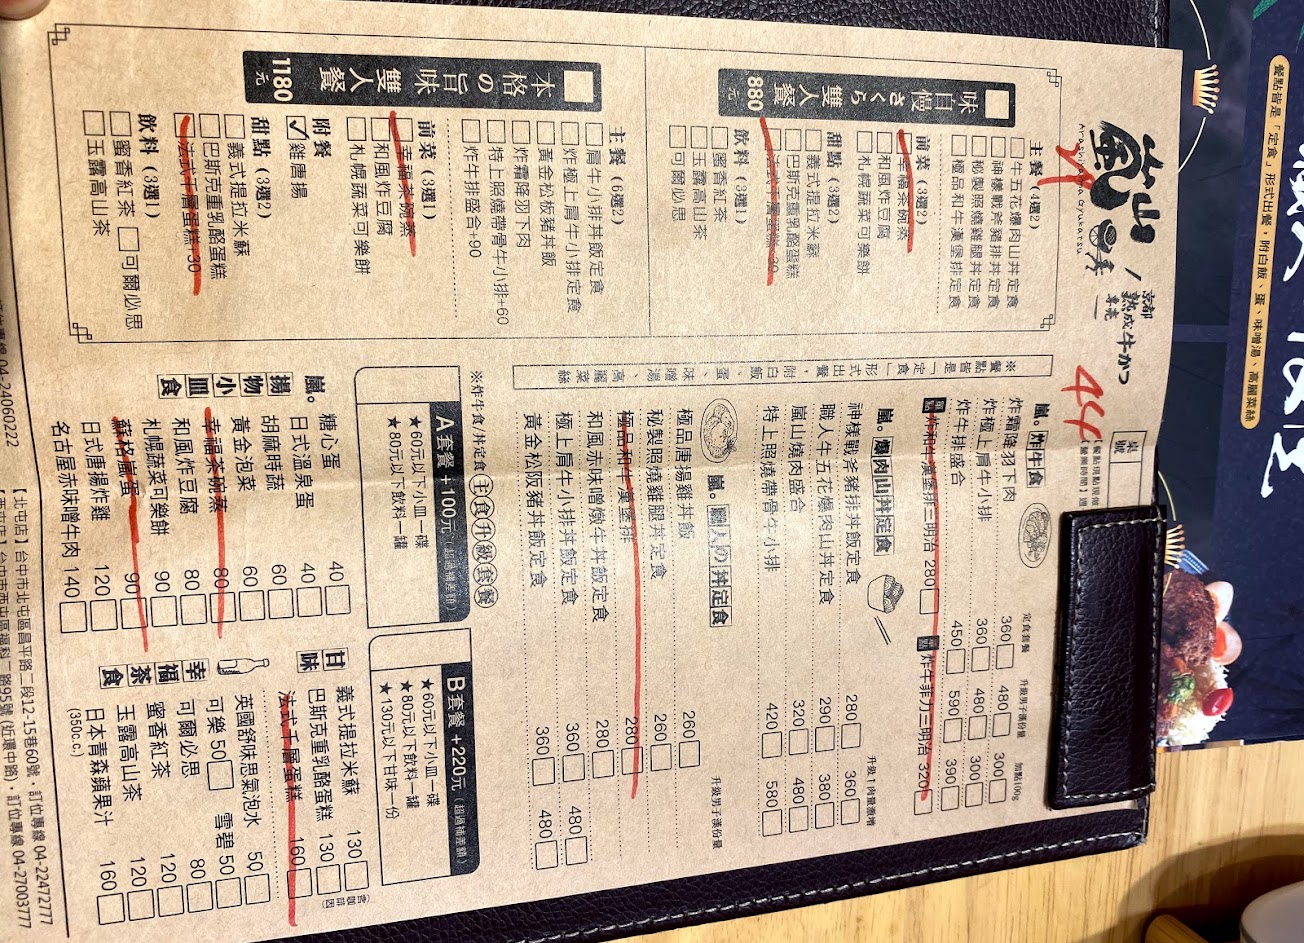 嵐山
Arashiyama Gyukatsu
京都
熟成牛かつ
專売
44
桌號
味自慢さくら雙人餐
880元
主餐 (4選2)
牛五花爆肉山丼定食
神樣戰斧豬排丼定食
秘製照燒雞腿丼定食
極品和牛漢堡排定食
前菜 (3選2)
幸福茶碗蒸
和風炸豆腐
札幌蔬菜可樂餅
甜點 (3選2)
義式提拉米蘇
巴斯克重乳酪蛋糕
法式千層蛋糕+30
飲料 (3選1)
蜜香紅茶
玉露高山茶
可爾必思
本格の旨味雙人餐
1180元
主餐 (6選2)
肩牛小排丼飯定食
炸極上肩牛小排定食
黃金松板豬丼飯
炸霜降羽下肉
特上照燒帶骨牛小排+60
炸牛排盛合+90
前菜 (3選1)
幸福茶碗蒸
和風炸豆腐
札幌蔬菜可樂餅
附餐
✓雞唐揚
甜點 (3選2)
義式提拉米穌
巴斯克重乳酪蛋糕
法式千層蛋糕+30
飲料 (3選1)
蜜香紅茶 可爾必思
玉露高山茶
※餐點皆是「定食」形式出餐,附白飯、蛋、味噌湯、高麗菜絲
嵐。炸牛食
定食套餐 升級男子漢份量 加點100g
炸霜降羽下肉 360 480 300
炸極上肩牛小排 360 480 300
炸牛排盛合 450 590 390
單點 炸和牛漢堡排三明治 280 單點 炸牛菲力三明治 320
嵐。爆肉山丼定食
升級1肉量激增
神樣戰斧豬排丼飯定食 280 360
職人牛五花爆肉山丼定食 290 380
嵐山燒肉盛合 320 480
特上照燒帶骨牛小排 420 580
嵐。職人の丼定食
升級男子漢份量
極品唐揚雞丼飯 260
秘製照燒雞腿丼定食 260
極品和牛漢堡排 280
和風赤味噌燉牛丼飯定食 280
極上肩牛小排丼飯定食 360 480
黃金松阪豬丼飯定食 360 480
※炸牛食/丼定食 主食升級套餐
A套餐+100元(超過補差額)
★60元以下小皿一碟
★80元以下飲料一罐
B套餐+220元(超過補差額)
★60元以下小皿一碟
★80元以下飲料一罐
★130元以下甘味一份
嵐。揚物小皿食
糖心蛋 40
日式溫泉蛋 40
胡麻時蔬 60
黃金泡菜 60
幸福茶碗蒸 80
和風炸豆腐 80
札幌蔬菜可樂餅 90
蘇格嵐蛋 90
日式唐揚炸雞 120
名古屋赤味噌牛肉 140
甘味
義式提拉米蘇 130
巴斯克重乳酪蛋糕 130
法式千層蛋糕 160
幸福茶食
英國舒味思氣泡水 50
可樂 50 雪碧 50
可爾必思 80
蜜香紅茶 120
玉露高山茶 120
日本青森蘋果汁 160
(350c.c.)
【北屯店】台中市北屯區昌平路二段12-15巷60號・訂位專線 04-22472777
04-24060222
訂位專線 04-27003777
餐點皆是「定食」形式出餐,附白飯、蛋、味噌湯、高麗菜絲